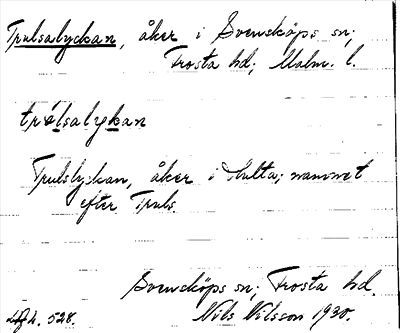 Trulsalyckan, åker i Svensköps sn;
Frosta hd; Malm. l.
trølsalykan
Trulslyckan, åker i Hulta; namnet
efter Truls.
Svensköps sn; Frosta hd.
528. Nils Nilsson 1930.